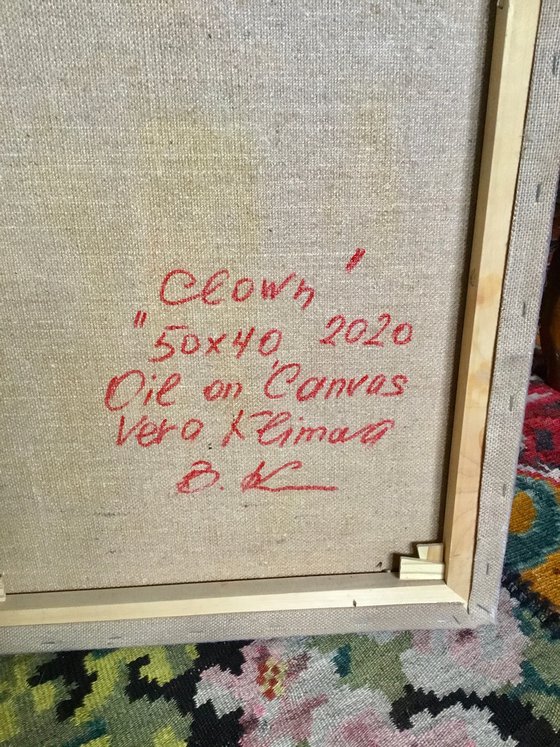 Clown "
" 50x40, 2020
Oil on Canvas
Vera Klimova
В. К